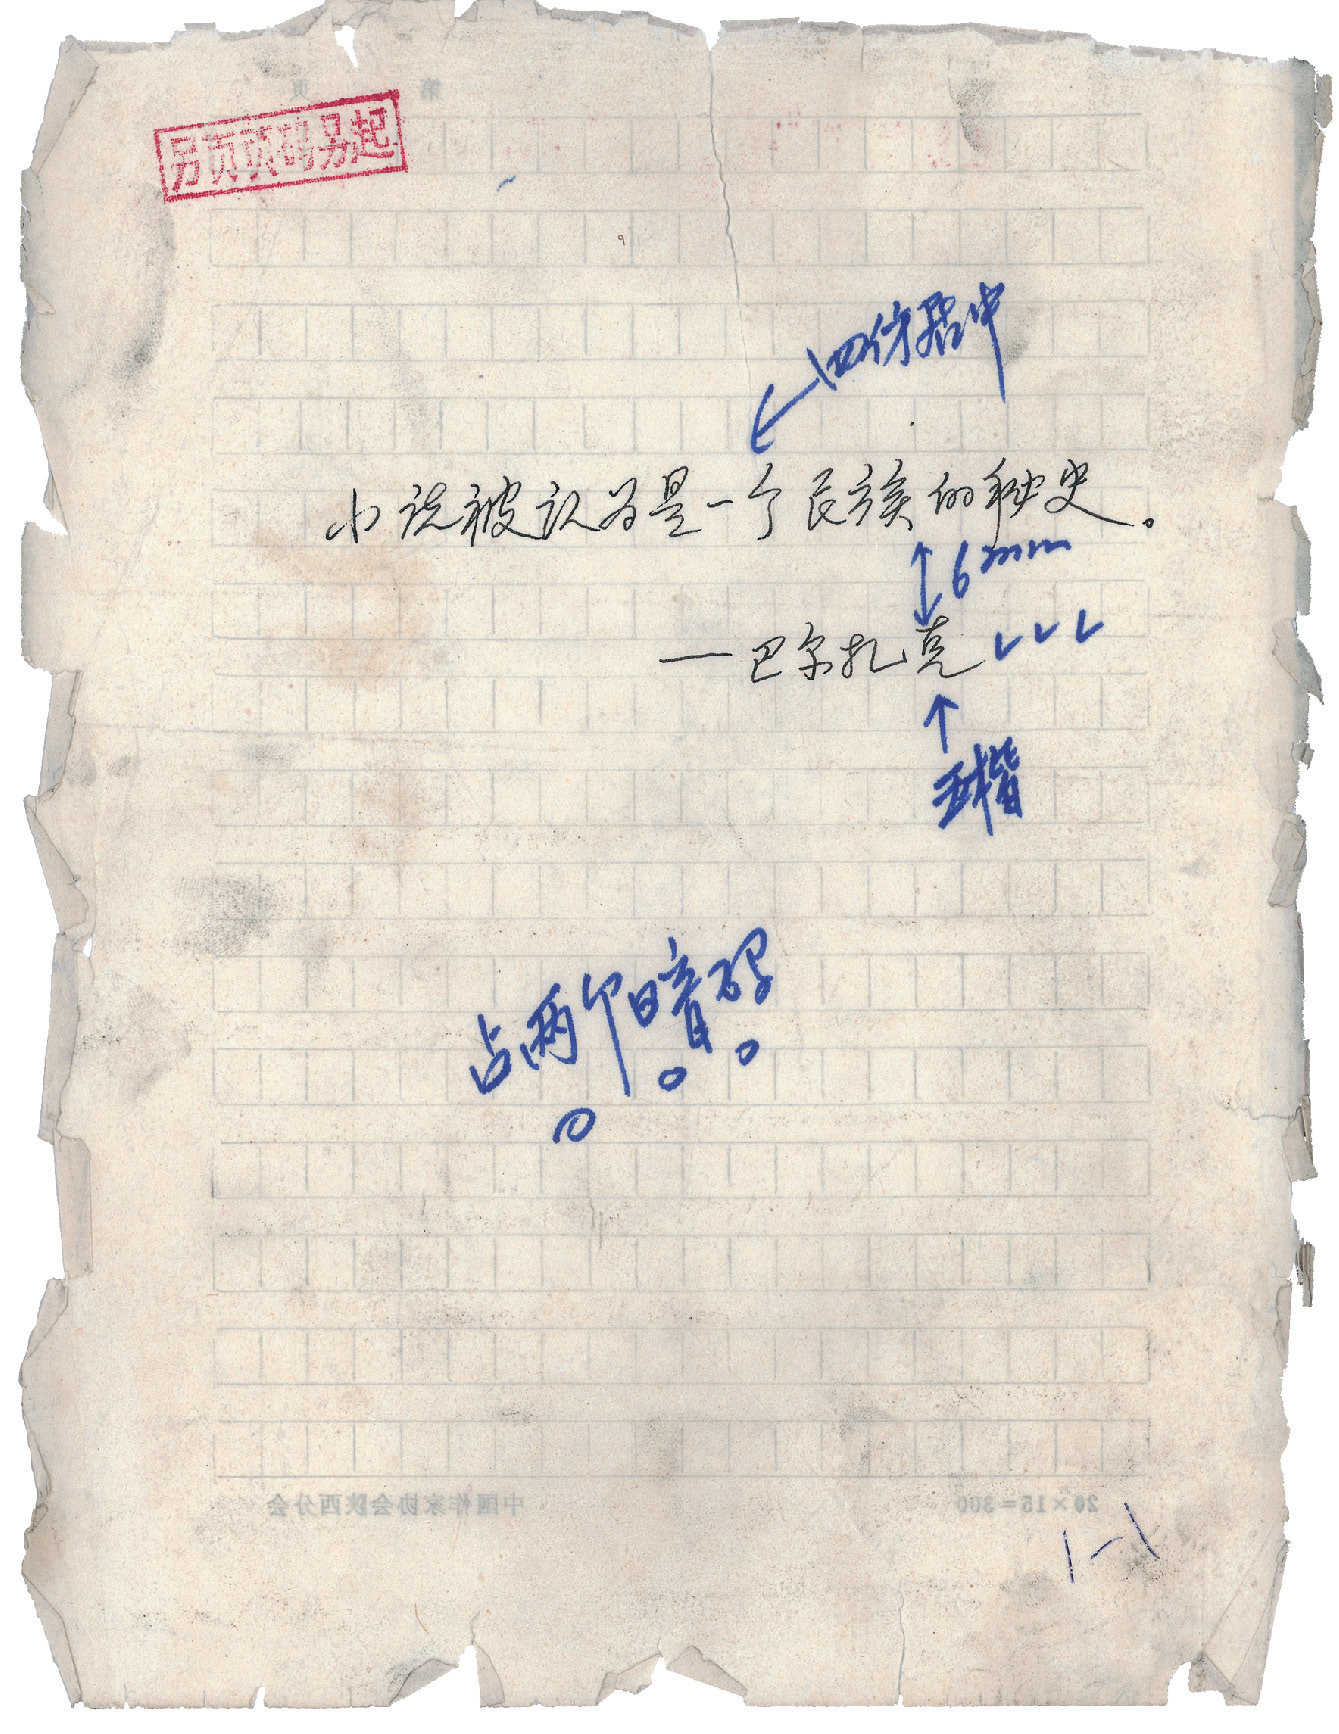 另页页码另起
四仿居中
小说被认为是一个民族的秘史。
6mm
——巴尔扎克
五楷
占两个暗码
中国作家协会陕西分会
20×15=300
1-1